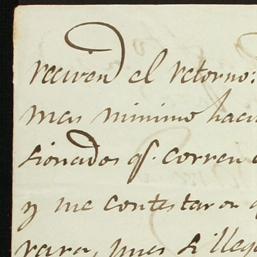 reciven el retorno:
mas minimo haci
sionados qe. corren
y me contestaron
rara, pues si llega